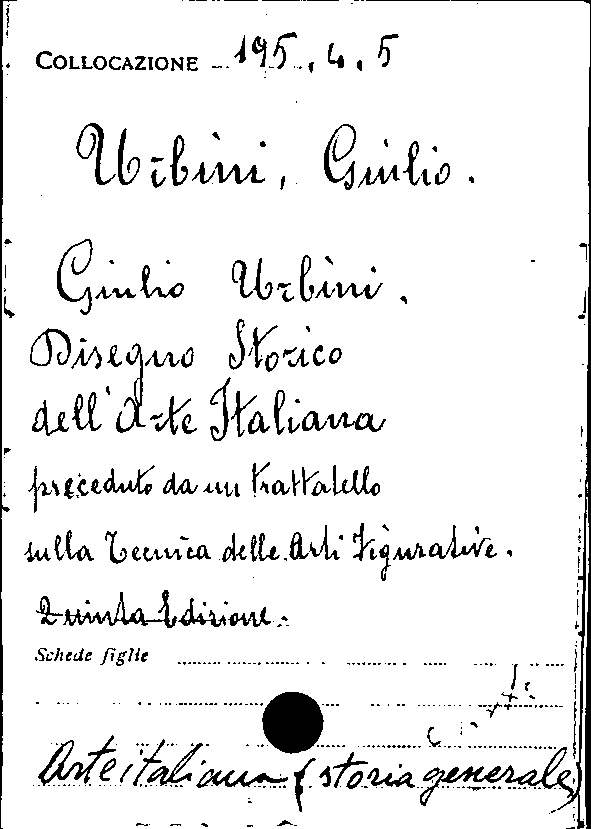 COLLOCAZIONE 195.4.5
Urbini, Giulio.
Giulio Urbini.
Disegno Storico
dell'Arte Italiana
preceduto da un trattatello
sulla Tecnica delle Arti Figurative.
Quinta Edizione.
Schede figlie
Arte italiana (storia generale)